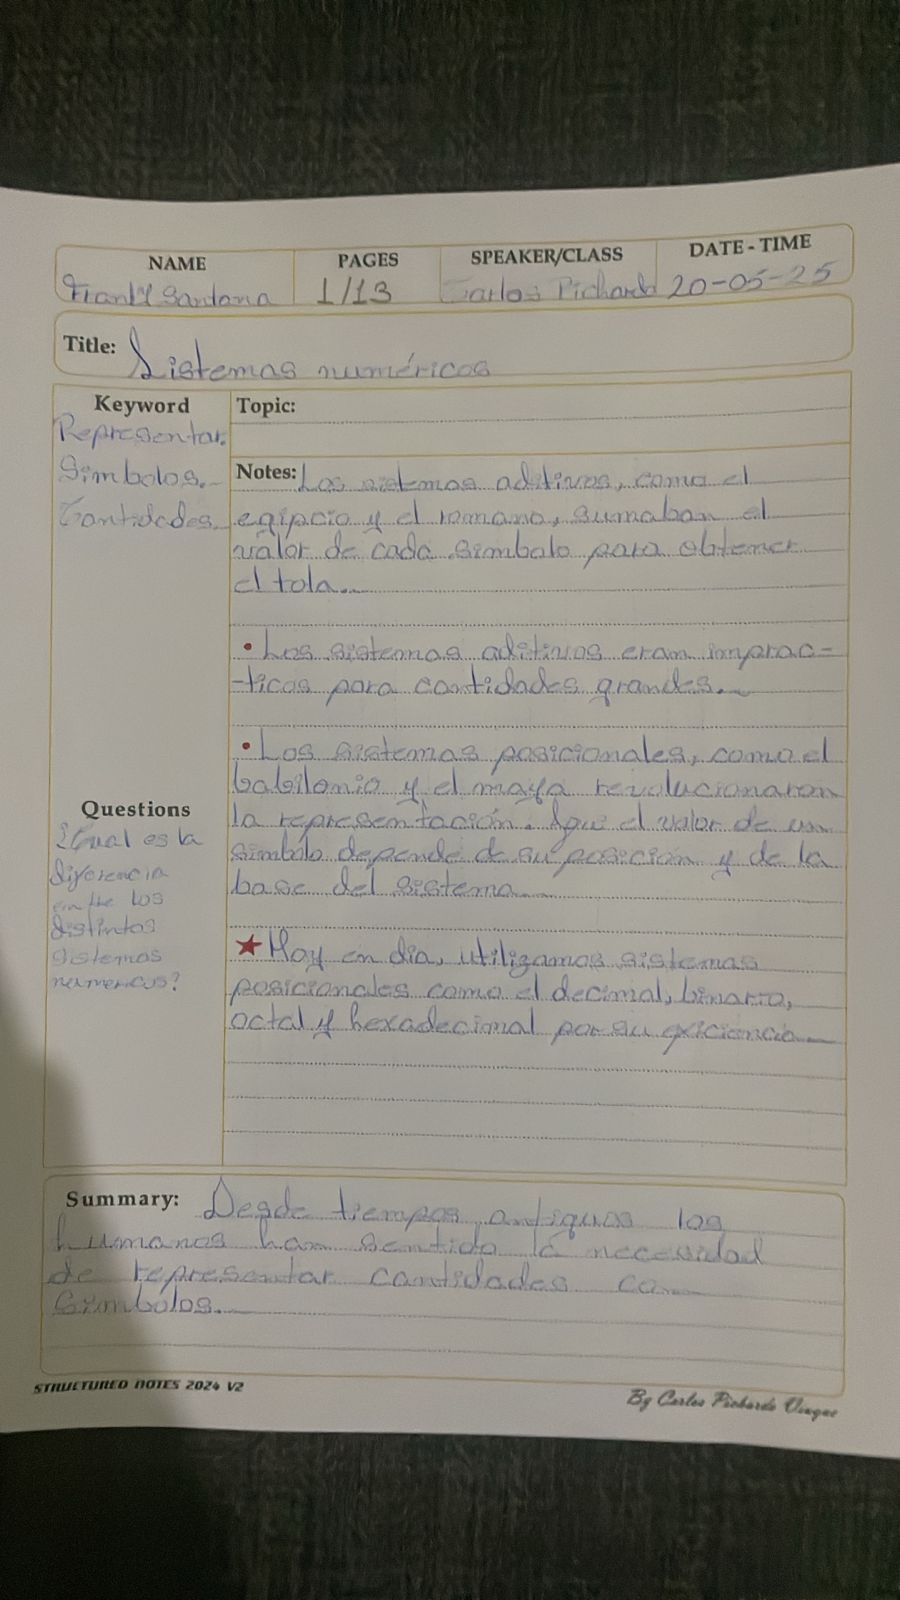 NAME PAGES SPEAKER/CLASS DATE - TIME
Frankly Santana 1/13 Carlos Pichardo 20-05-25
Title: Sistemas numéricos
Keyword
Representar.
Simbolos.
Cantidades.
Topic:
Notes: Los sistemas aditivos, como el
egipcio y el romano, sumaban el
valor de cada simbolo para obtener
el tola..
• Los sistemas aditivos eram imprac-
-ticos para cantidades grandes.
• Los sistemas posicionales, como el
babilonio y el maya revolucionaron
la representación. Aqui el valor de un
simbolo depende de su posicion y de la
base del sistema
★ Hoy en dia, utilizamos sistemas
posicionales como el decimal, binario,
octal y hexadecimal por su eficiencia
Questions
¿Cual es la
diferencia
entre los
distintos
sistemas
numericos?
Summary: Desde tiempos antiguos los
humanos han sentido la necesidad
de representar cantidades co
Simbolos.
STRUCTURED NOTES 2024 V2
By Carlos Pichardo Viuque